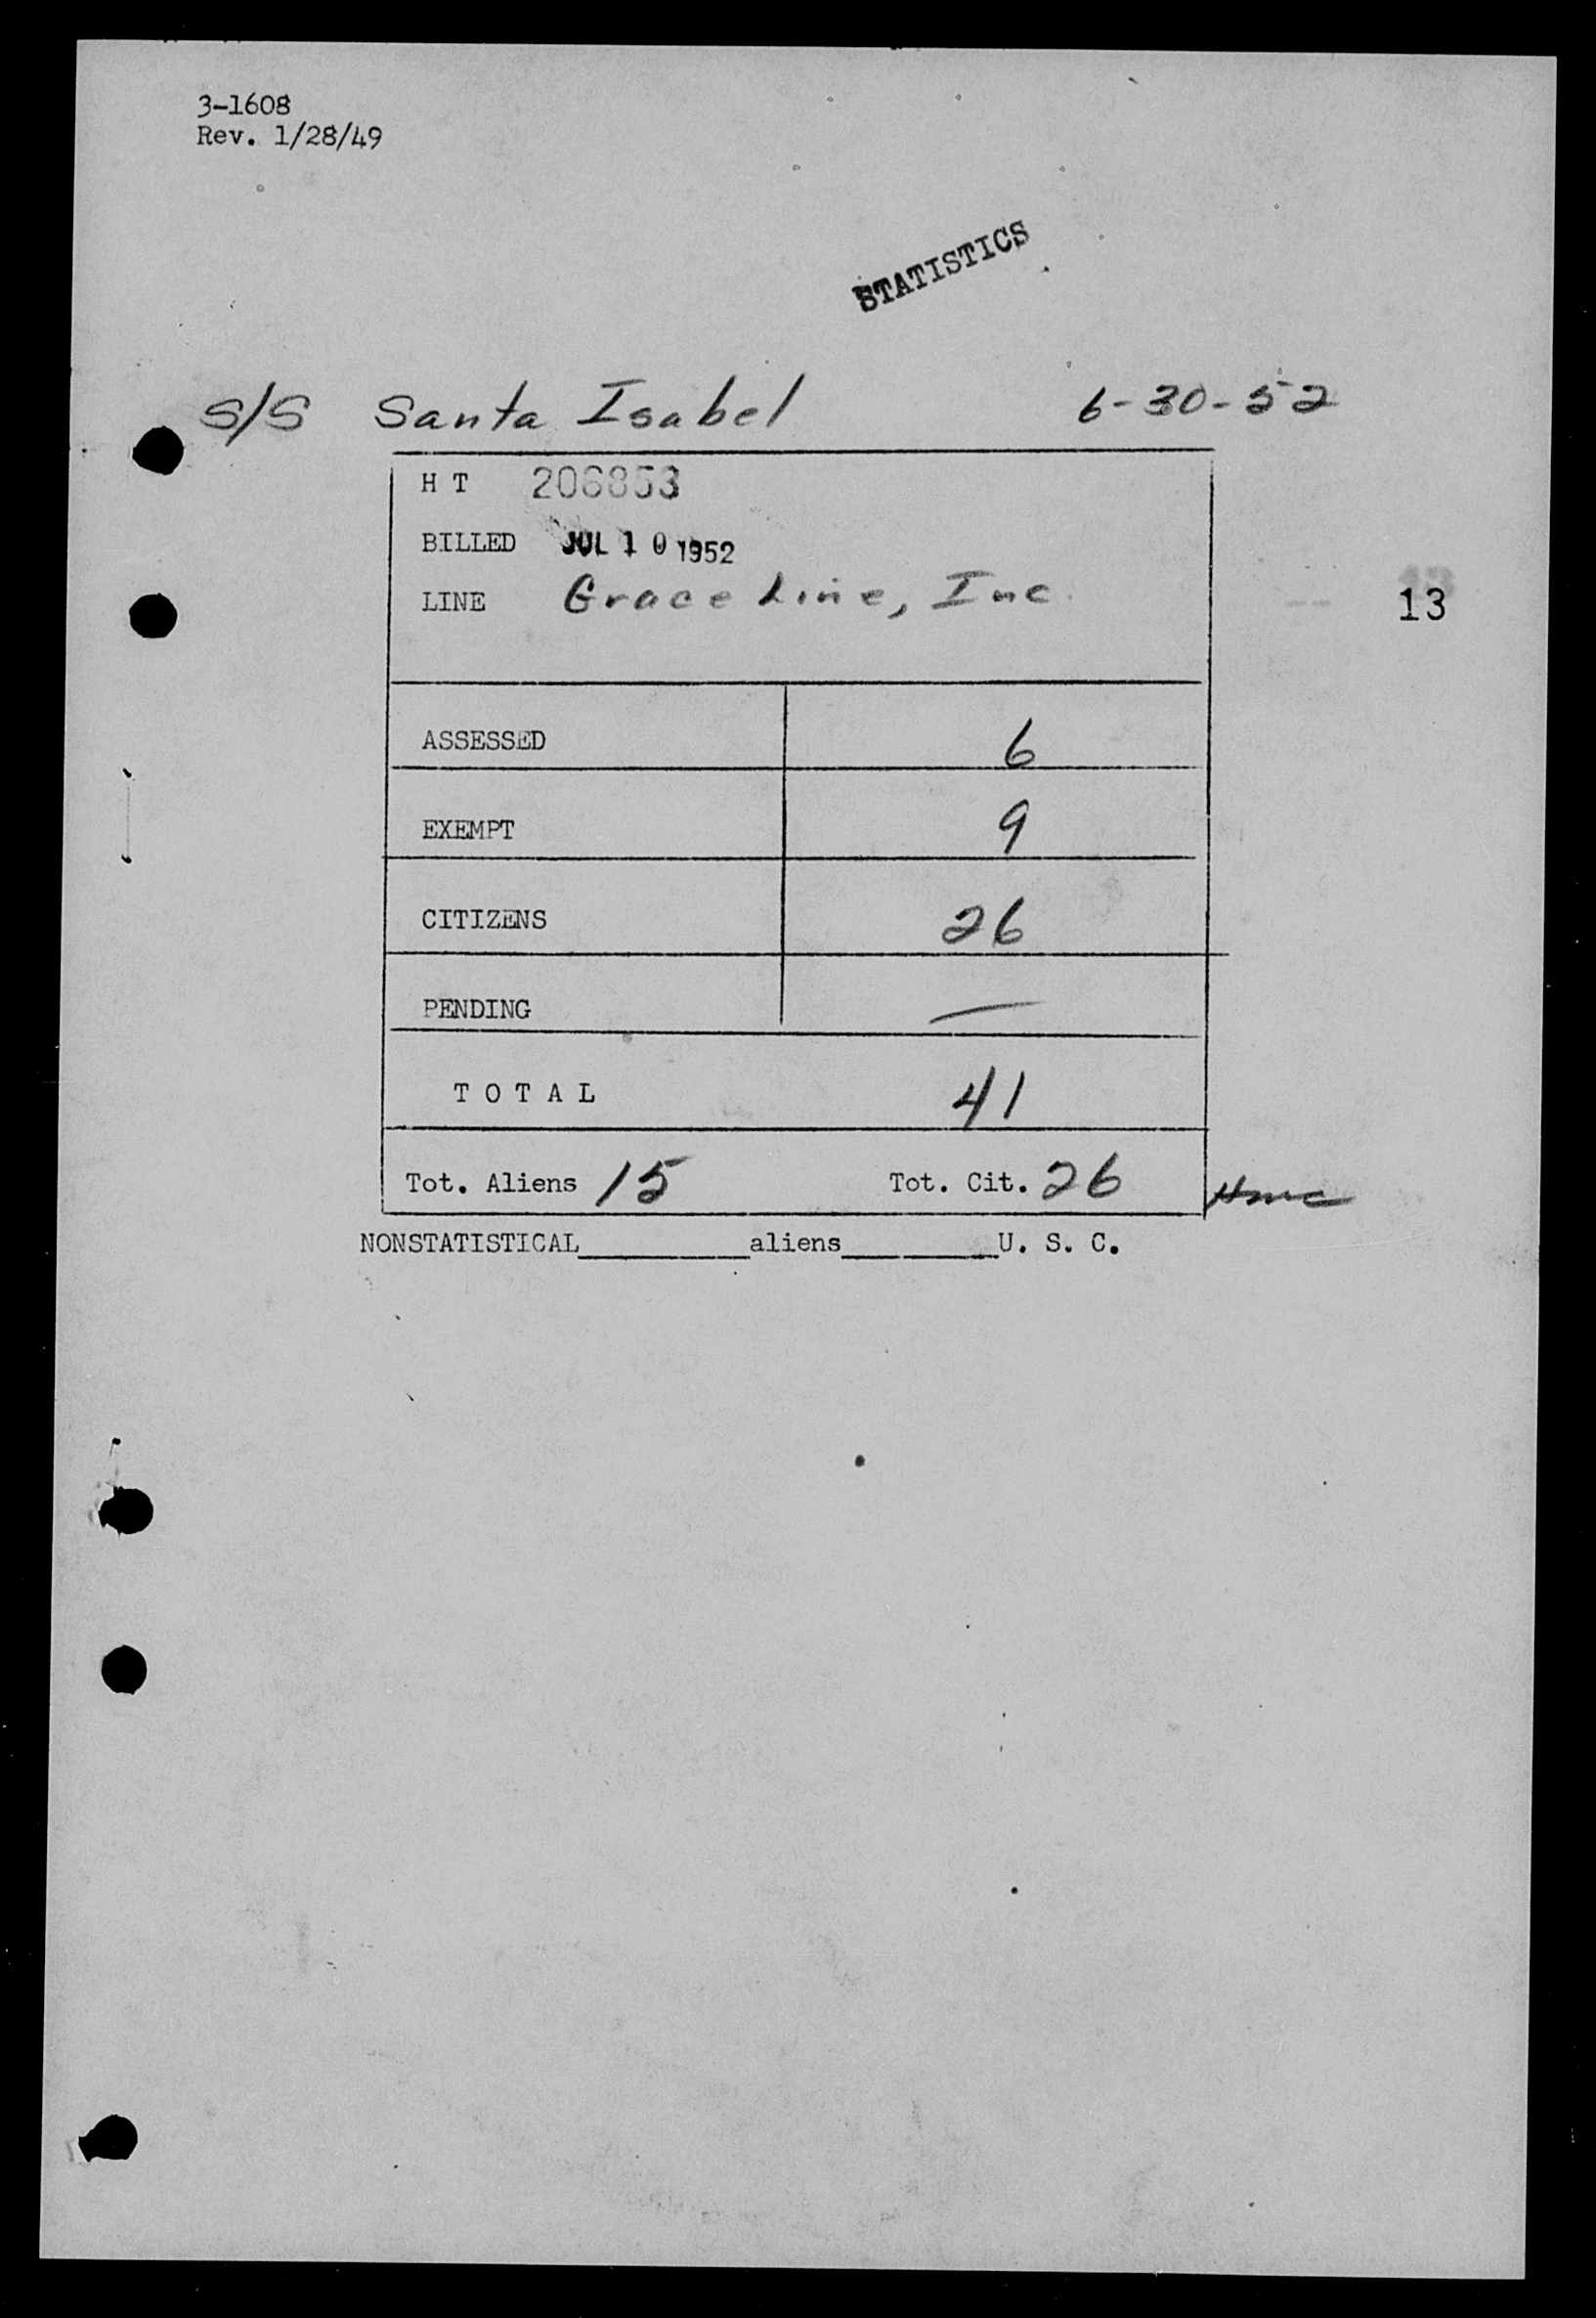 3-1608
Rev. 1/28/49
STATISTICS
S/S Santa Isabel 6-30-52
H T 206853
BILLED JUL 10 1952
LINE Grace Line, Inc.
13
ASSESSED 6
EXEMPT 9
CITIZENS 26
PENDING —
T O T A L 41
Tot. Aliens 15 Tot. Cit. 26
NONSTATISTICAL__________aliens__________U. S. C.